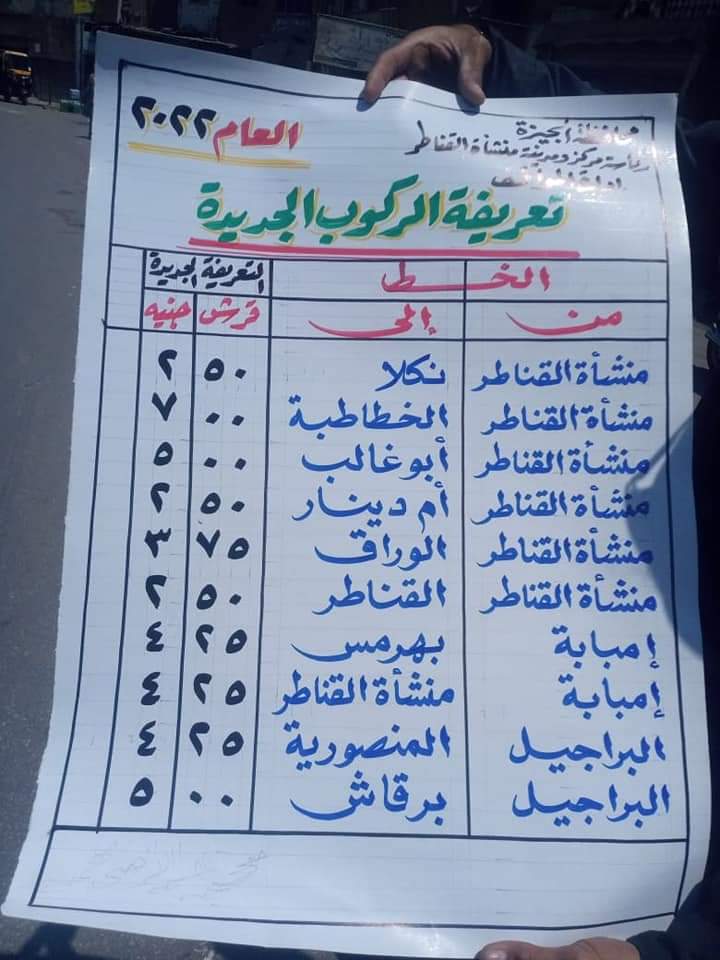 محافظة الجيزة
رئاسة مركز ومدينة منشأة القناطر
العام ٢٠٢٢
تعريفة الركوب الجديدة
الخط التعريفة الجديدة
من إلى قرش جنيه
منشأة القناطر نكلا ٥٠ ٢
منشأة القناطر الخطاطبة ٠٠ ٧
منشأة القناطر أبو غالب ٠٠ ٥
منشأة القناطر أم دينار ٥٠ ٢
منشأة القناطر الوراق ٧٥ ٣
منشأة القناطر القناطر ٥٠ ٢
إمبابة بهرمس ٢٥ ٤
إمبابة منشأة القناطر ٢٥ ٤
البراجيل المنصورية ٢٥ ٤
البراجيل برقاش ٠٠ ٥